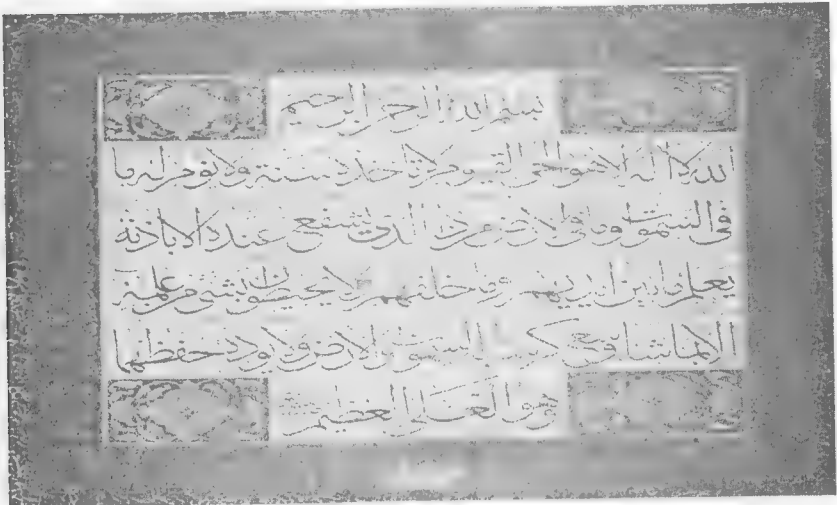 بسم الله الرحمن الرحيم
الله لا اله الا هو الحي القيوم لا تاخذه سنة ولا نوم له ما
في السموات وما في الارض من ذا الذي يشفع عنده الا باذنه
يعلم ما بين ايديهم وما خلفهم ولا يحيطون بشيء من علمه
الا بما شاء وسع كرسيه السموات والارض ولا يوده حفظهما
وهو العلي العظيم